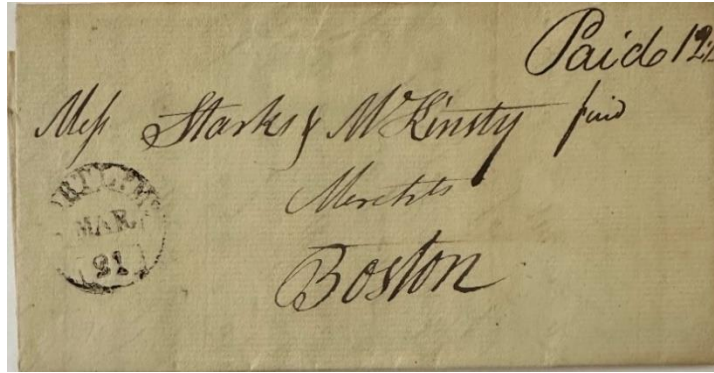 Paid 12½
Messʳˢ Starks & McKinsty paid
Merchts
Boston
MAR.
21